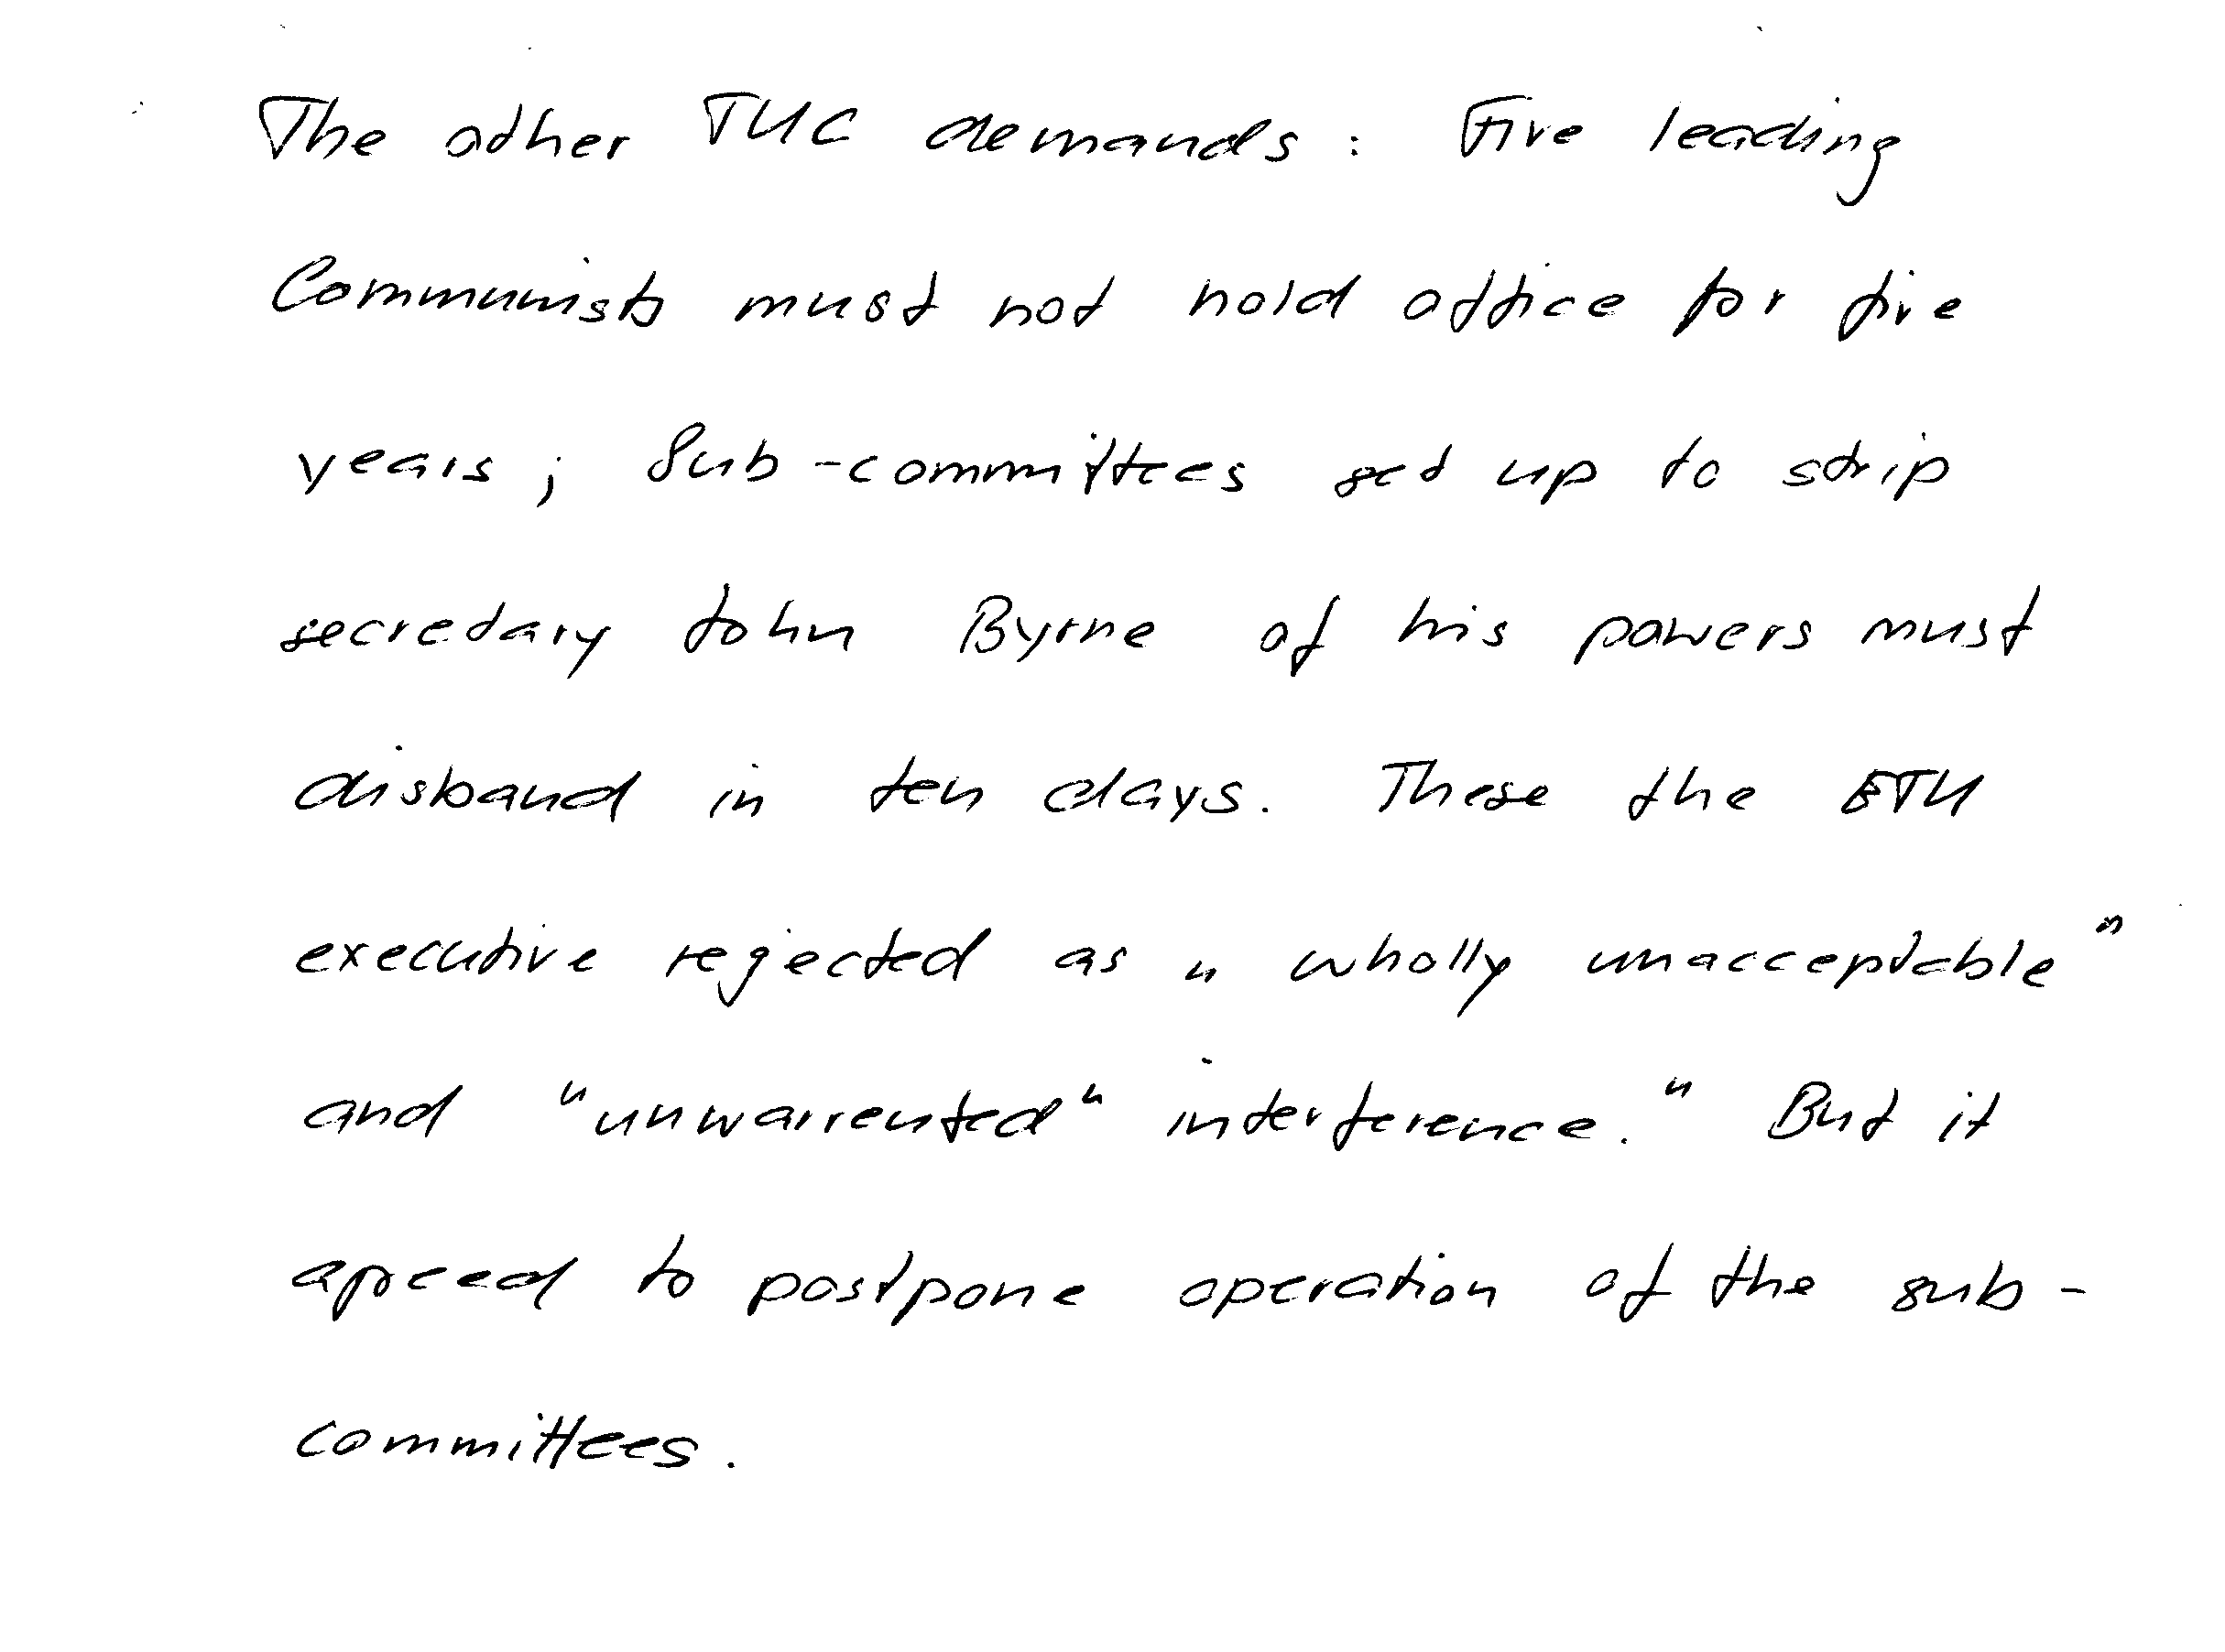 The other TUC demands : Five leading
Communists must not hold office for five
years ; Sub-committees set up to strip
secretary John Byrne of his powers must
disband in ten days. These the ETU
executive rejected as " wholly unacceptable "
and "unwarrented" interference. " But it
agreed to postpone operation of the sub-
committees.